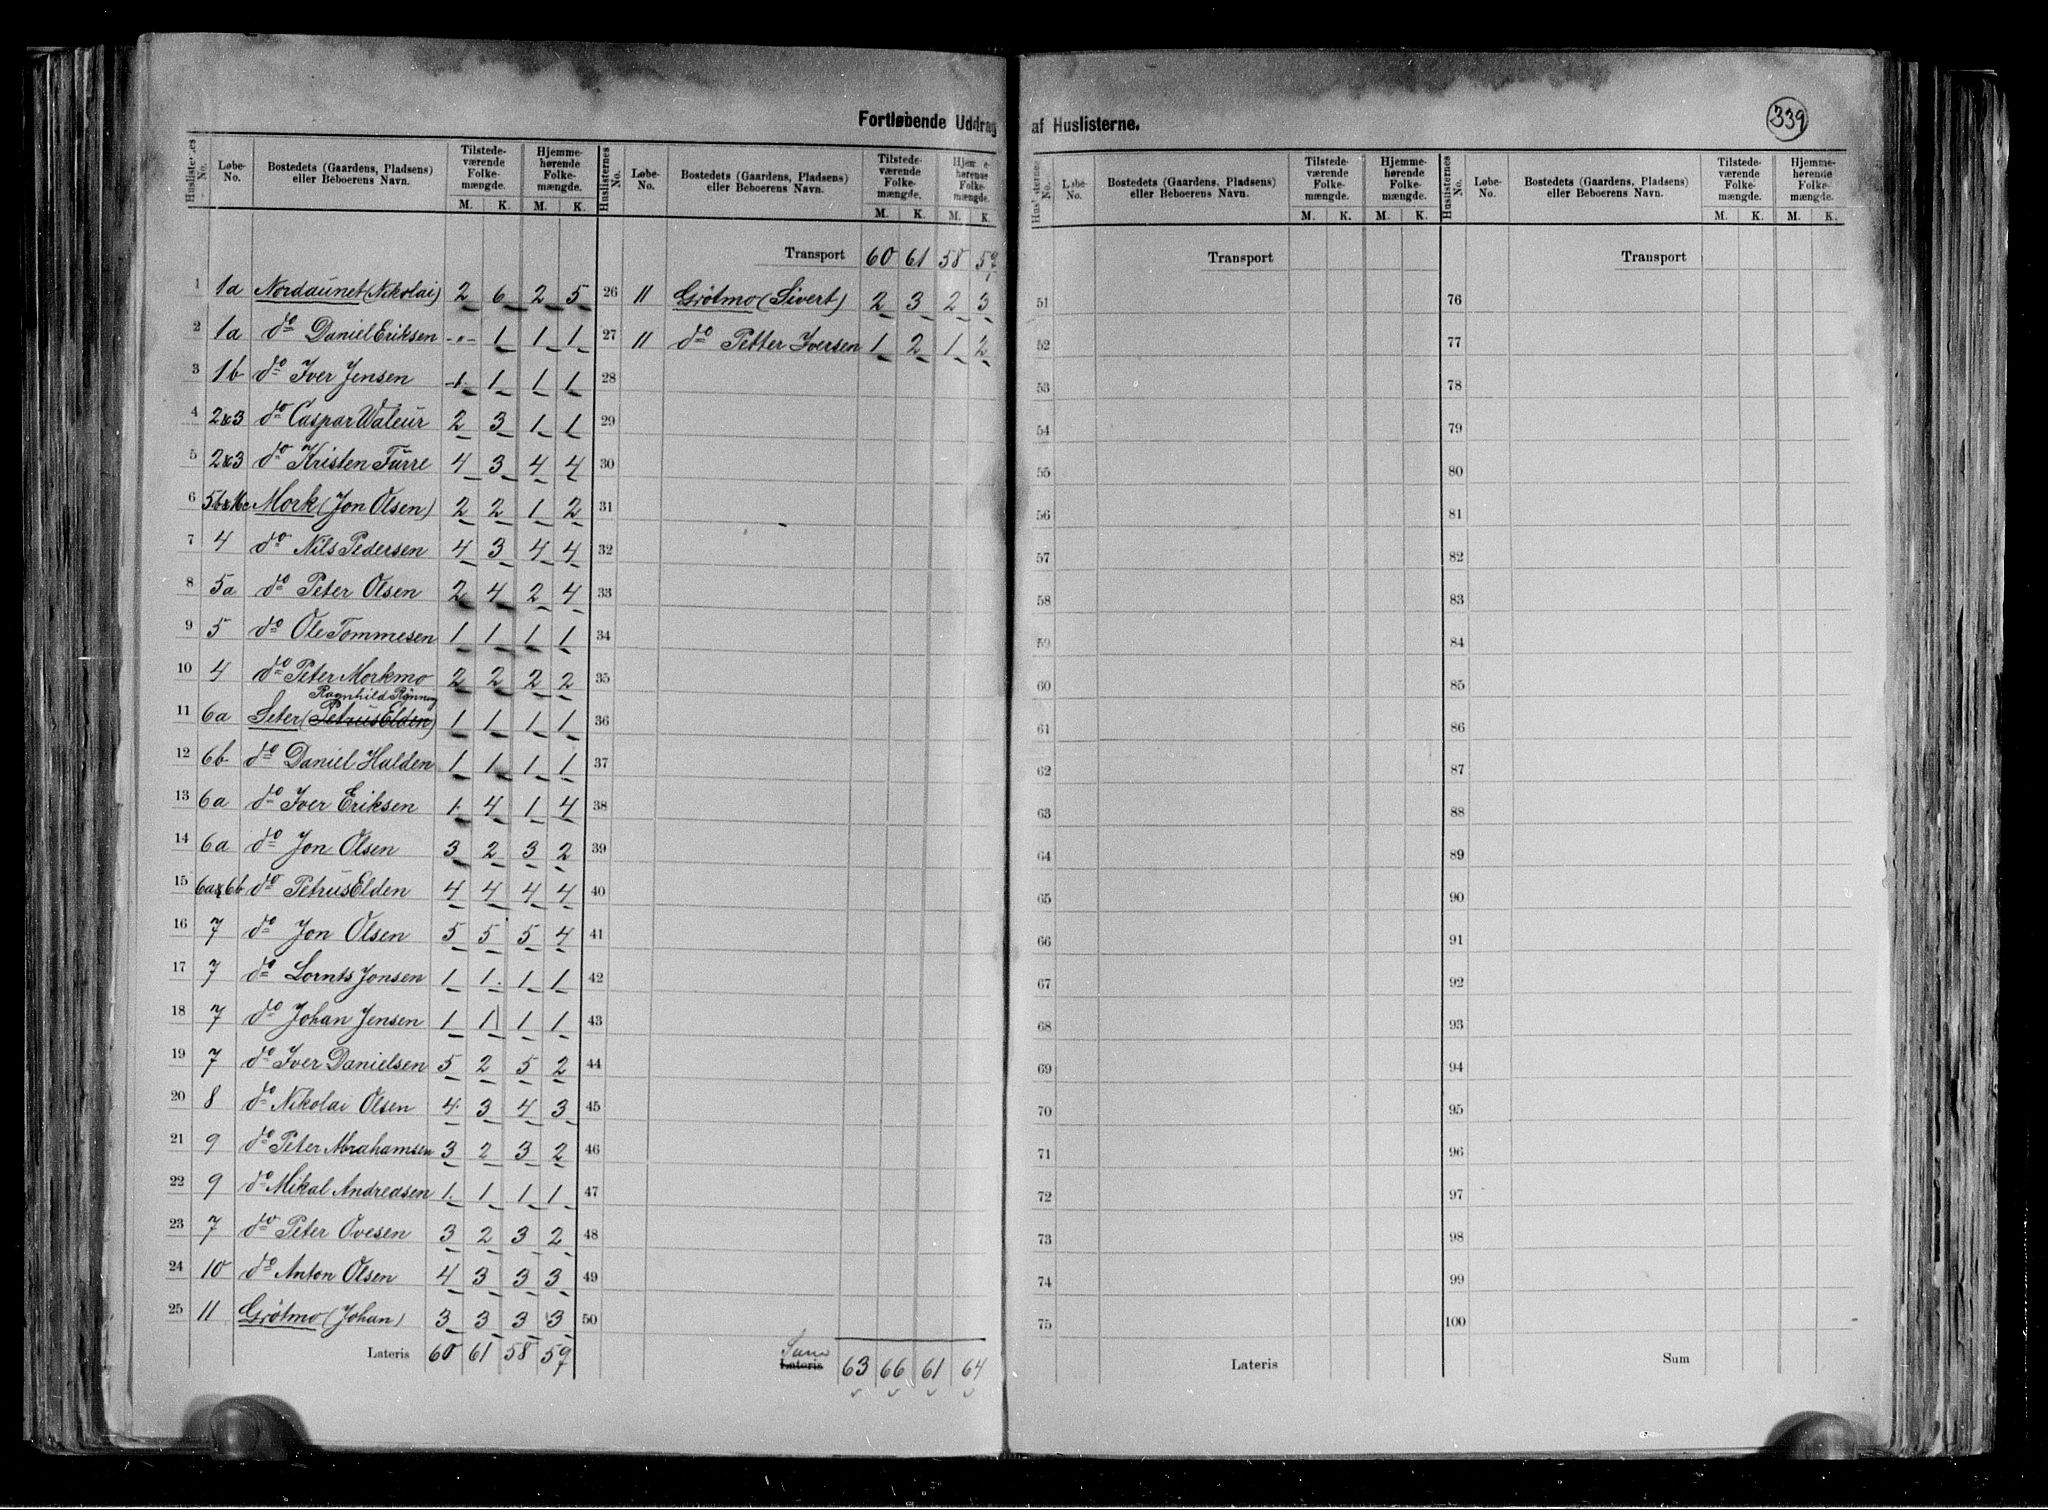 Fortløbende Uddrag af Huslisterne.
339
Huslisternes No. | Løbe-No. | Bostedets (Gaardens, Pladsens) eller Beboerens Navn. | Tilstedeværende Folkemængde. M. K. | Hjemmehørende Folkemængde. M. K.
1 1a Nordaunet (Nikolai) 2 6 2 5
2 1a do Daniel Eriksen -"- 1 1 1
3 1b do Iver Jensen 1 1 1 1
4 2&3 do Caspar Waleur 2 3 1 1
5 2&3 do Kristen Furre 4 3 4 4
6 Mork (Jon Olsen) 2 2 1 2
7 4 do Nils Pedersen 4 3 4 4
8 5a do Peter Olsen 2 4 2 4
9 5 do Ole Tommesen 1 1 1 1
10 4 do Peter Morkmo 2 2 2 2
Ragnhild Rönning
11 6a Seter (Petrus Elden) 1 1 1 1
12 6b do Daniel Halden 1 1 1 1
13 6a do Iver Eriksen 1 4 1 4
14 6a do Jon Olsen 3 2 3 2
15 6a&6b do Petrus Elden 4 4 4 4
16 7 do Jon Olsen 5 5 5 4
17 7 do Lornts Jonsen 1 1 1 1
18 7 do Johan Jensen 1 1 1 1
19 7 do Iver Danielsen 5 2 5 2
20 8 do Nikolai Olsen 4 3 4 3
21 9 do Peter Abrahamsen 3 2 3 2
22 9 do Mikal Andreasen 1 1 1 1
23 7 do Peter Ovesen 3 2 3 2
24 10 do Anton Olsen 4 3 3 3
25 11 Grötmo (Johan) 3 3 3 3
Lateris 60 61 58 59
Huslisternes No. | Løbe-No. | Bostedets (Gaardens, Pladsens) eller Beboerens Navn. | Tilstedeværende Folkemængde. M. K. | Hjemmehørende Folkemængde. M. K.
Transport 60 61 58 59
26 11 Grötmo (Sivert) 2 3 2 3
27 11 do Petter Iversen 1 2 1 2
28
29
30
31
32
33
34
35
36
37
38
39
40
41
42
43
44
45
46
47
48
49
50
Sum
Lateris 63 66 61 64
Huslisternes No. | Løbe-No. | Bostedets (Gaardens, Pladsens) eller Beboerens Navn. | Tilstedeværende Folkemængde. M. K. | Hjemmehørende Folkemængde. M. K.
Transport
51
52
53
54
55
56
57
58
59
60
61
62
63
64
65
66
67
68
69
70
71
72
73
74
75
Lateris
Huslisternes No. | Løbe-No. | Bostedets (Gaardens, Pladsens) eller Beboerens Navn. | Tilstedeværende Folkemængde. M. K. | Hjemmehørende Folkemængde. M. K.
Transport
76
77
78
79
80
81
82
83
84
85
86
87
88
89
90
91
92
93
94
95
96
97
98
99
100
Sum